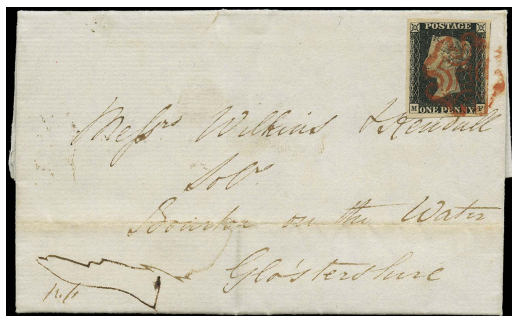 POSTAGE
M ONE PENNY F
Messrs Wilkins & Kendall
Solrs
Bourton on the Water
Glo'stershire